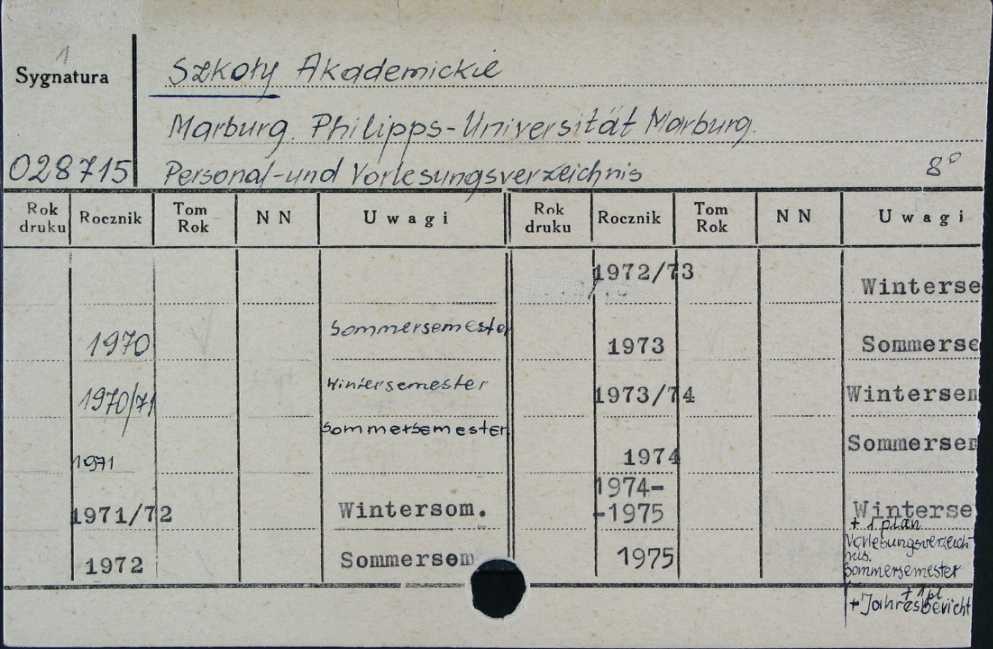 1
Sygnatura
Szkoły Akademickie
Marburg. Philipps-Universität Marburg.
028715
Personal-und Vorlesungsverzeichnis 8°
Rok druku Rocznik Tom Rok NN Uwagi Rok druku Rocznik Tom Rok NN Uwagi
1972/73 Winterse
1970 Sommersemester 1973 Sommerse
1970/71 Wintersemester 1973/74 Wintersem
1971 Sommersemester 1974 Sommersem
1971/72 Wintersom. 1974-
-1975 Winterse
+ 1 plan
1972 Sommersem 1975 Vorlesungsverzeich-
nis.
Sommersemester
+ 1 pl
+ Jahresbericht